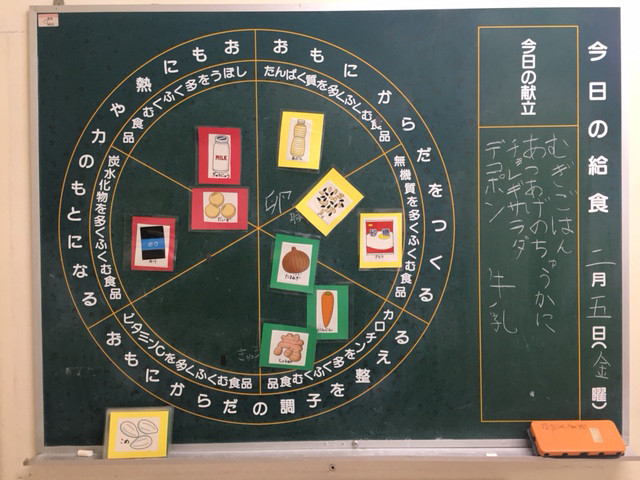 今日の給食 二月五日(金曜)
今日の献立
むぎごはん
あつあげのちゅうかに
チョレギサラダ 牛乳
デコポン
おもにからだをつくる
たんぱく質を多くふくむ食品
無機質を多くふくむ食品
おもにからだの調子を整える
カロチンを多くふくむ食品
ビタミンCを多くふくむ食品
おもに熱や力のもとになる
炭水化物を多くふくむ食品
しぼうを多くふくむ食品
卵
MILK
たまねぎ
にんじん
しょうが
こめ